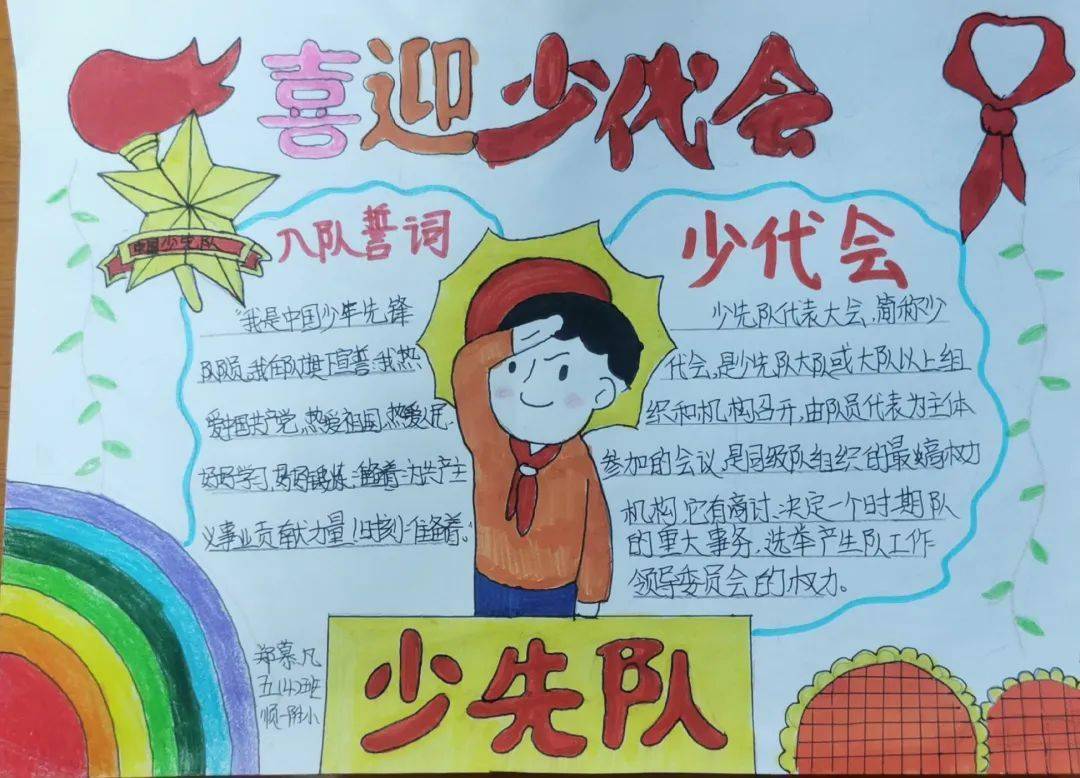 喜迎少代会
中国少先队
入队誓词
"我是中国少年先锋
队队员,我在队旗下宣誓:我热
爱中国共产党,热爱祖国,热爱人民,
好好学习,好好锻炼,准备着:为共产主
义事业贡献力量,(时刻)准备着。
少代会
少先队代表大会,简称少
代会,是少先队大队或大队以上组
织和机构召开,由队员代表为主体
参加的会议,是同级队组织的最高权力
机构,它有商讨、决定一个时期队
的重大事务,选举产生队工作
领导委员会的权力。
郑慕凡
五(4)班
顺一附小
少先队